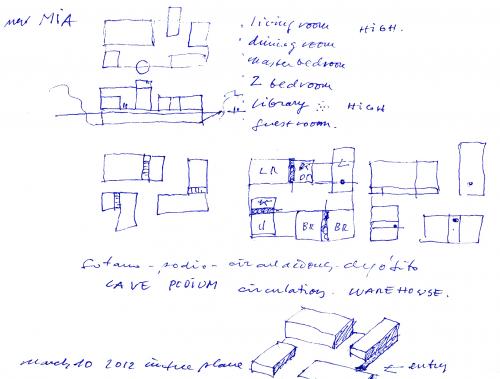 new MIA
living room HIGH.
dinning room
master bedroom
2 bedroom
library HIGH
guestroom.
LR K L
BR BR
podio - circulaciones - depósito
CAVE PODIUM circulation. WAREHOUSE.
entry
March 10 2012 in the plane